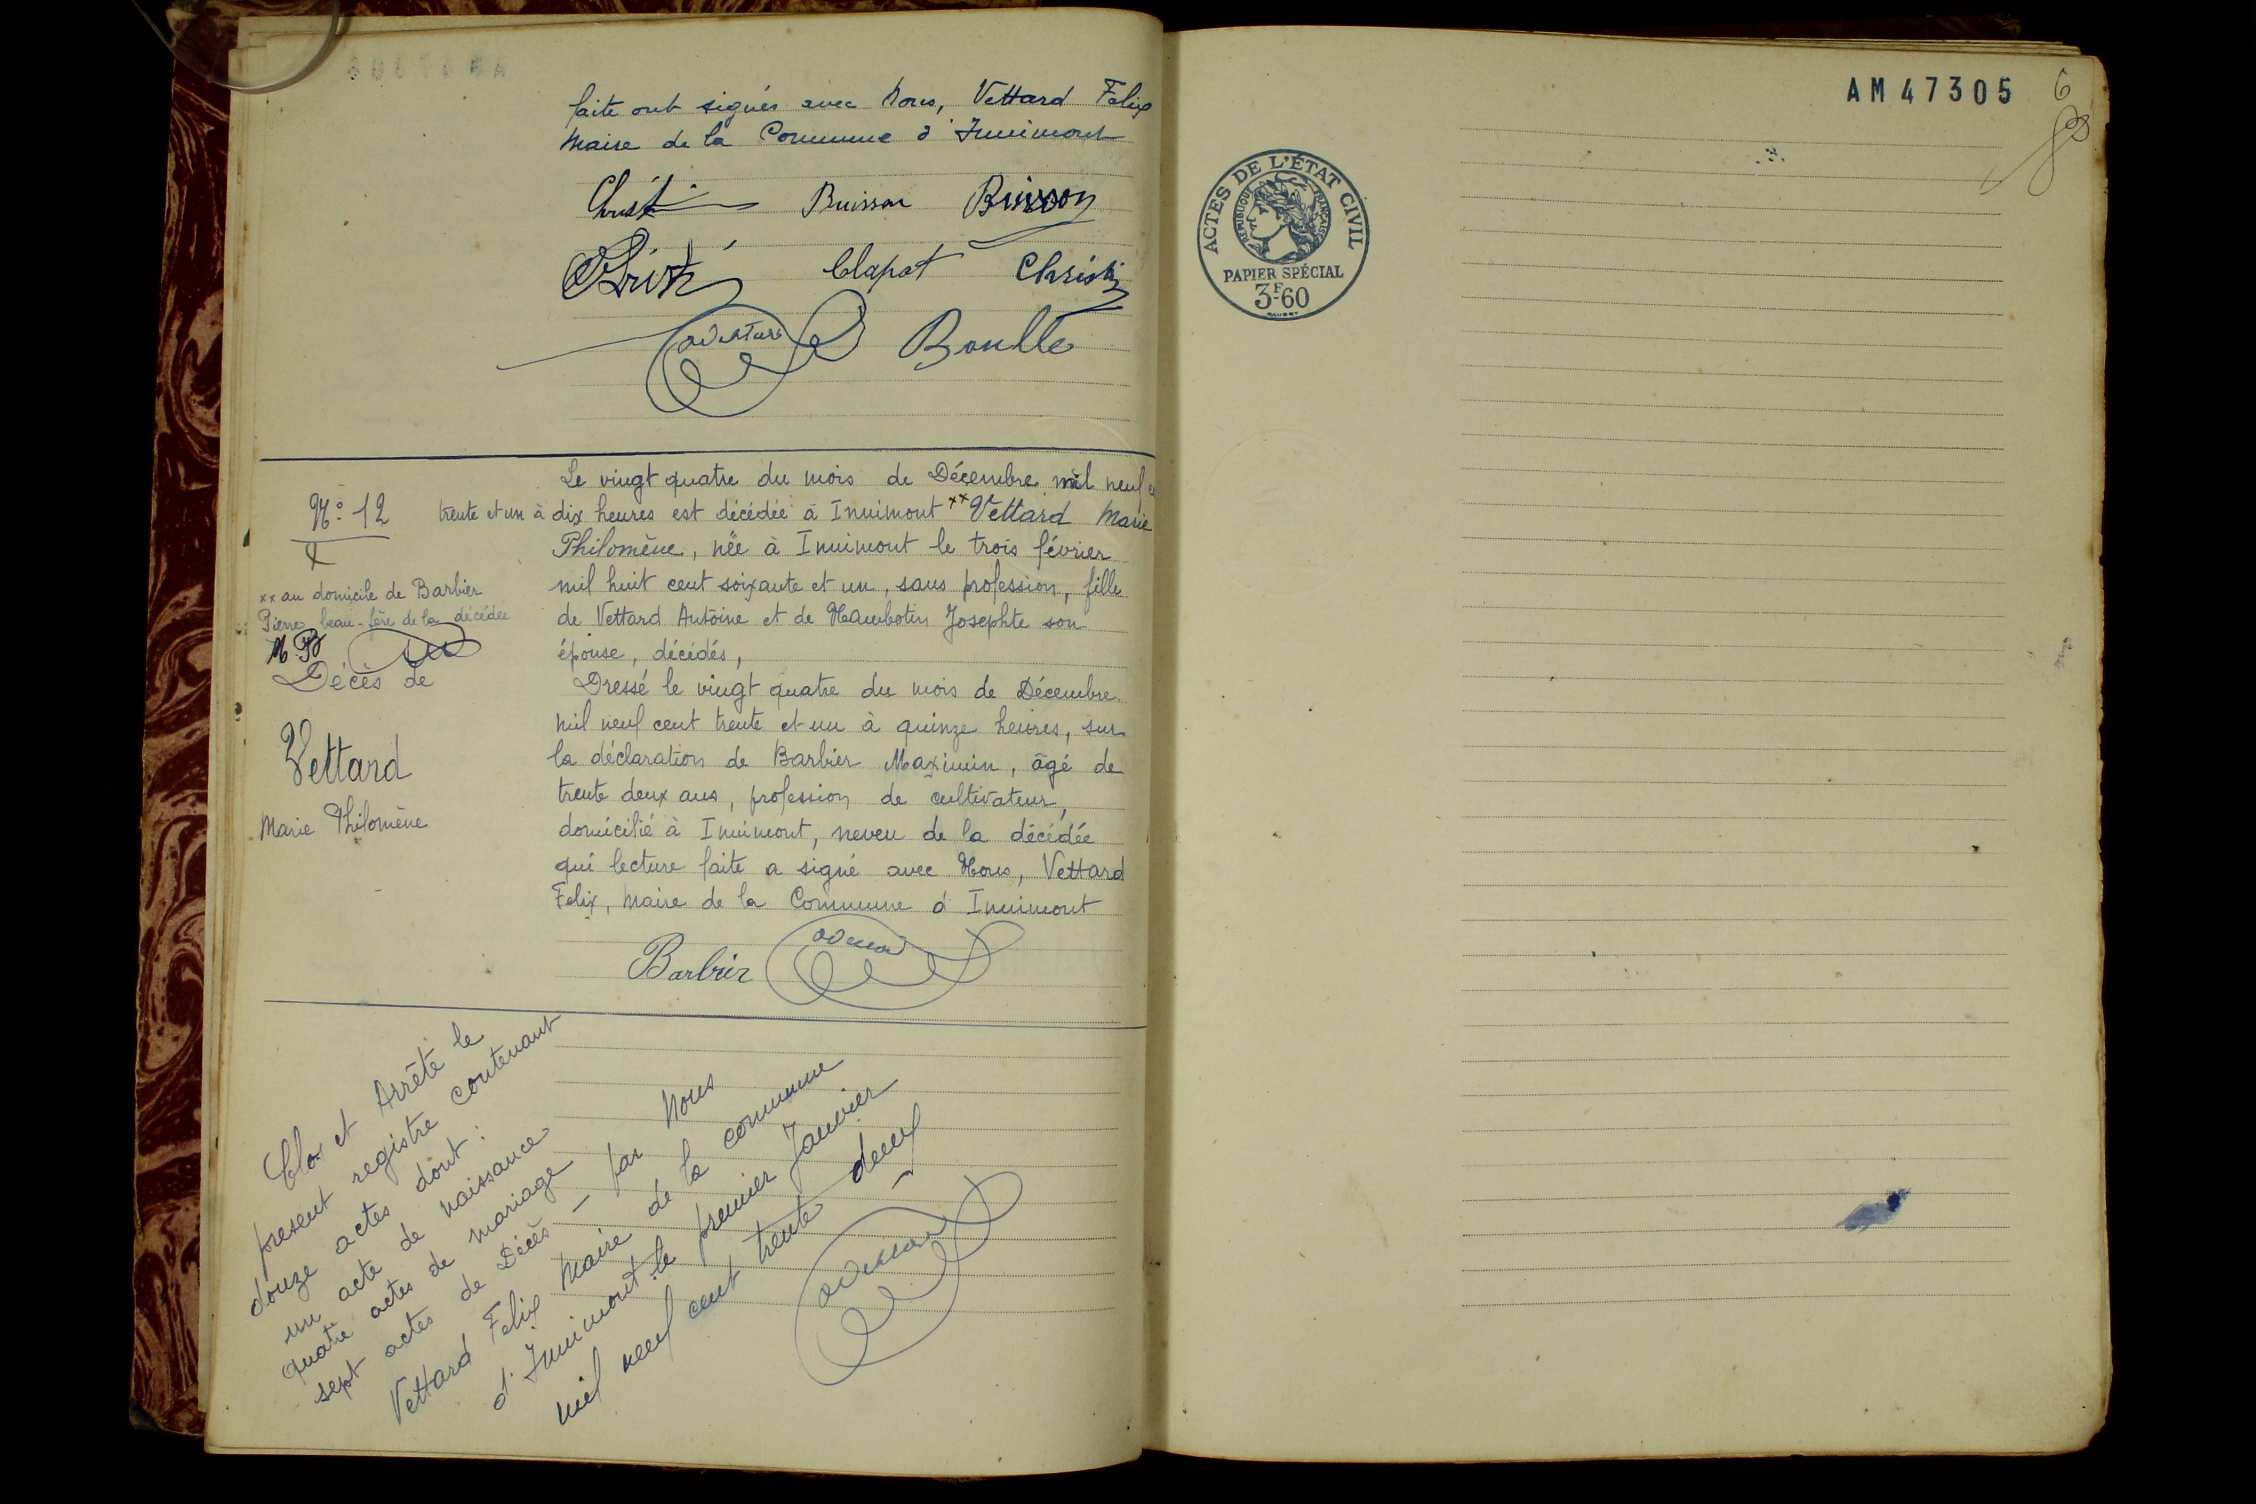 faite ont signés avec Nous, Vettard Felix
Maire de la Commune d'Innimont
Christin Buisson Buisson
Clapot Christin
Boulle
N° 12
Le vingt quatre du mois de Décembre mil neuf
trente et un à dix heures est décédée à Innimont xx Vettard Marie
Philomène, née à Innimont le trois février
mil huit cent soixante et un, sans profession, fille
de Vettard Antoine et de Hambotin Josephte son
épouse, décédés,
xx au domicile de Barbier
Pierre beau-frère de la décédée
MB
Décès de
Vettard
Marie Philomène
Dressé le vingt quatre du mois de Décembre
mil neuf cent trente et un à quinze heures, sur
la déclaration de Barbier Maximin, âgé de
trente deux ans, profession de cultivateur,
domicilié à Innimont, neveu de la décédée
qui lecture faite a signé avec Nous, Vettard
Felix, Maire de la Commune d'Innimont
Barbier
Clos et Arrêté le
present registre contenant
douze actes dont :
un acte de naissance
quatre actes de mariage
sept actes de Décès — par Nous
Vettard Felix Maire de la commune
d'Innimont le premier Janvier
mil neuf cent trente deux
AM 47305
6
ACTES DE L'ÉTAT CIVIL
REPUBLIQUE FRANÇAISE
PAPIER SPÉCIAL
3F60